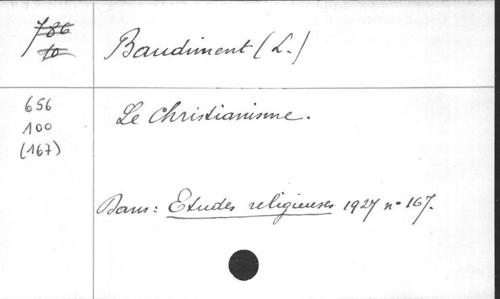 786
10
Baudiment (L.)
656
100
(167)
Le Christianisme.
Dans: Etudes religieuses 1927 n° 167.